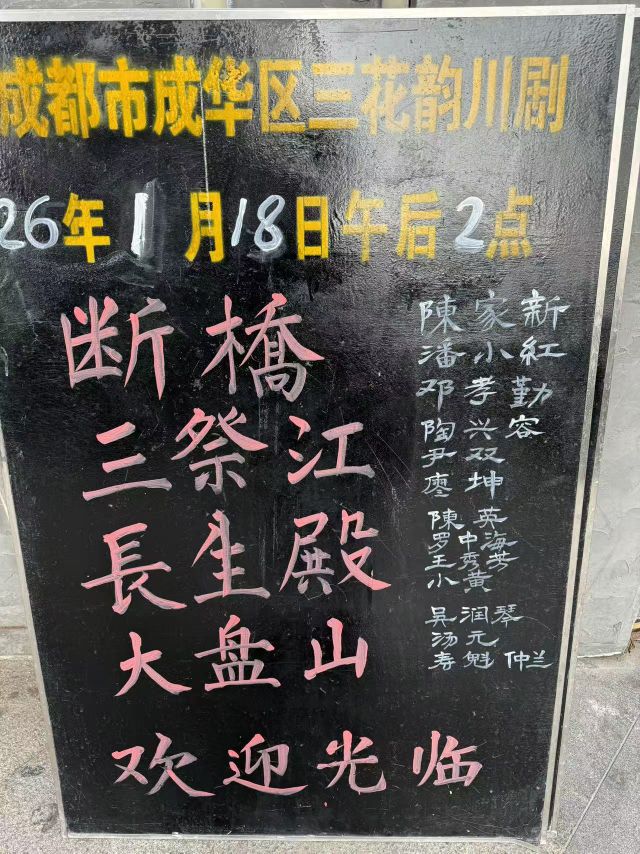 成都市成华区三花韵川剧
26年1月18日午后2点
断橋
三祭江
長生殿
大盘山
欢迎光临
陳家新
潘小紅
邓孝勤
陶兴容
尹双
廖坤
陳英
罗中海
王秀芳
小黄
吴润琴
汤元
寿魁 仲兰